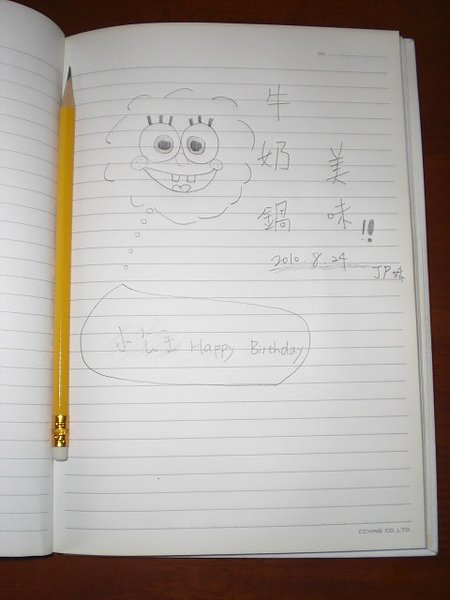 牛奶鍋
美味!!
2010. 8. 24
JP妹
Happy Birthday
CCHING CO.,LTD.